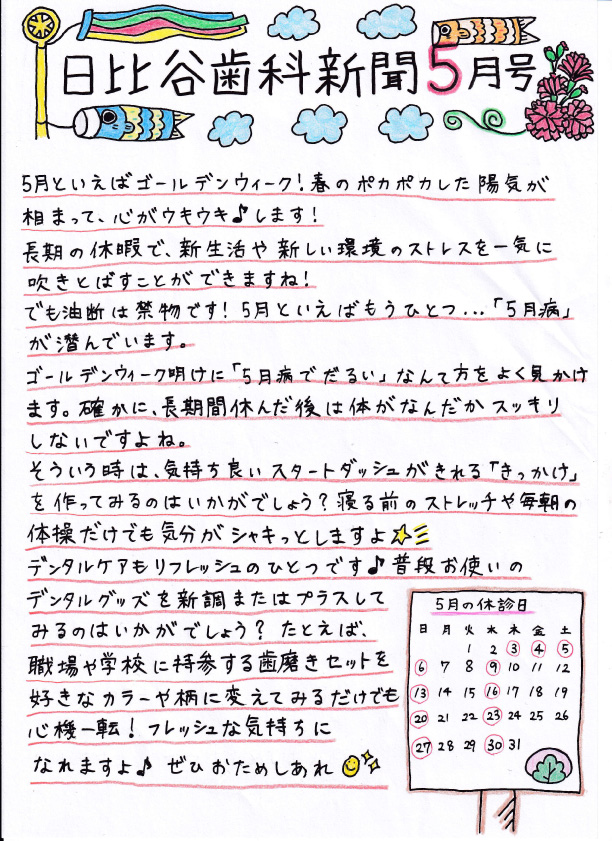 日比谷歯科新聞5月号
5月といえばゴールデンウィーク!春のポカポカした陽気が
相まって、心がウキウキ♪します!
長期の休暇で、新生活や新しい環境のストレスを一気に
吹きとばすことができますね!
でも油断は禁物です!5月といえばもうひとつ…「5月病」
が潜んでいます。
ゴールデンウィーク明けに「5月病でだるい」なんて方をよく見かけ
ます。確かに、長期間休んだ後は体がなんだかスッキリ
しないですよね。
そういう時は、気持ち良いスタートダッシュがきれる「きっかけ」
を作ってみるのはいかがでしょう?寝る前のストレッチや毎朝の
体操だけでも気分がシャキっとしますよ
デンタルケアもリフレッシュのひとつです♪普段お使いの
デンタルグッズを新調またはプラスして
みるのはいかがでしょう?たとえば、
職場や学校に持参する歯磨きセットを
好きなカラーや柄に変えてみるだけでも
心機一転!フレッシュな気持ちに
なれますよ♪ぜひおためしあれ
5月の休診日
日 月 火 水 木 金 土
1 2 3 4 5
6 7 8 9 10 11 12
13 14 15 16 17 18 19
20 21 22 23 24 25 26
27 28 29 30 31